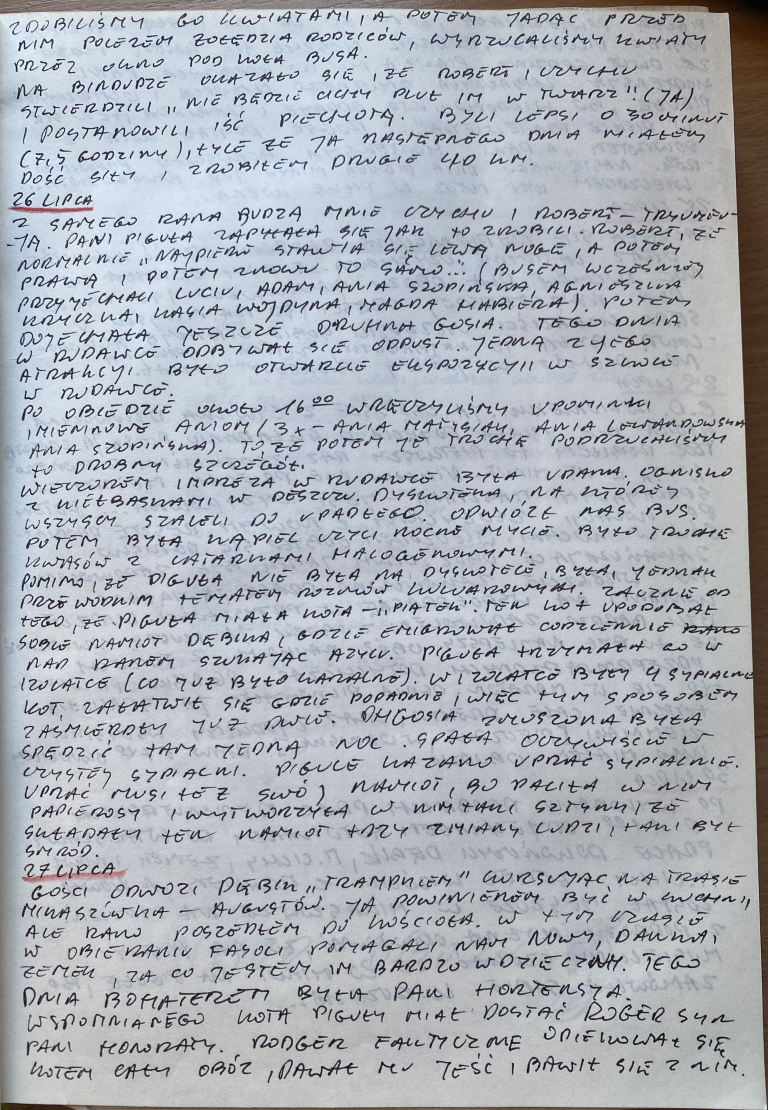 ZDOBILIŚMY GO KWIATAMI, A POTEM JADĄC PRZED
NIM POLEZEM ZOŁĘDZIA RODZICÓW, WYRZUCALIŚMY KWIATY
PRZEZ OKNO POD KOŁA BUSA.
NA BINDUDZE OKAZAŁO SIĘ, ŻE ROBERT, CZYCHU
STWIERDZILI „NIE BĘDZIE CICHY PLUŁ IM W TWARZ". (JA)
I POSTANOWILI IŚĆ PIECHOTĄ. BYLI LEPSI O 30 MINUT
(7,5 GODZINY), TYLE ŻE JA NASTĘPNEGO DNIA MIAŁEM
DOŚĆ SIŁY I ZROBIŁEM DRUGIE 40 KM.
26 LIPCA
Z SAMEGO RANA BUDZĄ MNIE CZYCHU I ROBERT – TRYUMFU-
-JĄ. PANI PIGUŁA ZAPYTAŁA SIĘ JAK TO ZROBILI. ROBERT, ŻE
NORMALNIE „NAJPIERW STAWIA SIĘ LEWĄ NOGĘ, A POTEM
PRAWĄ I POTEM ZNOWU TO SAMO..." (BUSEM WCZEŚNIEJ
PRZYJECHALI LUCIU, ADAM, ANIA SZOPIŃSKA, AGNIESZKA
KRYCZKA, KASIA WOJDYNA, MAGDA HABIERA). POTEM
DOJECHAŁA JESZCZE DRUHNA GOSIA. TEGO DNIA
W RUDAWCE ODBYWAŁ SIĘ ODPUST. JEDNĄ Z JEGO
ATRAKCJI BYŁO OTWARCIE EKSPOZYCJI W SZKOLE
W RUDAWCE.
PO OBIEDZIE OKOŁO 16⁰⁰ WRĘCZYLIŚMY UPOMINKI
IMIENINOWE ANIOM (3x – ANIA MATYSIAK, ANIA LEWANDOWSKA
ANIA SZOPIŃSKA). TO ŻE POTEM JE TROCHĘ PODRZUCALIŚMY
TO DROBNY SZCZEGÓŁ.
WIECZOREM IMPREZA W RUDAWCE BYŁA UDANA. OGNISKO
Z KIEŁBASKAMI W DESZCZU. DYSKOTEKA, NA KTÓREJ
WSZYSCY SZALELI DO UPADŁEGO. ODWIÓZŁ NAS BUS.
POTEM BYŁA KĄPIEL CZYLI NOCNE MYCIE. BYŁO TROCHĘ
KWASÓW Z LATARKAMI HALOGENOWYMI.
POMIMO, ŻE PIGUŁA NIE BYŁA NA DYSKOTECE, BYŁA, JEDNAK
PRZEWODNIM TEMATEM ROZMÓW KULUAROWYCH. ZACZNĘ OD
TEGO, ŻE PIGUŁA MIAŁA KOTA – „PIĄTEK". TEN KOT UPODOBAŁ
SOBIE NAMIOT DĘBINA, GDZIE EMIGROWAŁ CODZIENNIE RANO
NAD RANEM SZUKAJĄC AZYLU. PIGUŁA TRZYMAŁA GO W
IZOLATCE (CO JUŻ BYŁO KARALNE). W IZOLATCE BYŁY 4 SYPIALNIE
KOT ZAŁATWIŁ SIĘ GDZIE POPADNIE, WIĘC TYM SPOSOBEM
ZAŚMIERDŁY JUŻ DWIE. DH GOSIA ZMUSZONA BYŁA
SPĘDZIĆ TAM JEDNĄ NOC. SPAŁA OCZYWIŚCIE W
CZYSTEJ SYPIALNI. PIGULE KAZANO UPRAĆ SYPIALNIE.
UPRAĆ MUSI TEŻ SWÓJ NAMIOT, BO PALIŁA W NIM
PAPIEROSY I WYTWORZYŁA W NIM TAKI SZTYNK, ŻE
SKŁADAŁY TEN NAMIOT TRZY ZMIANY LUDZI, TAKI BYŁ
SMRÓD.
27 LIPCA
GOŚCI ODWOZI DĘBIN „TRAMPKIEM" KURSUJĄC NA TRASIE
MIKASZÓWKA – AUGUSTÓW. JA POWINIENEM BYĆ W KUCHNI,
ALE RANO POSZEDŁEM DO KOŚCIOŁA. W TYM CZASIE
W OBIERANIU FASOLI POMAGALI NAM NOWY, DANKA,
ZEMEK, ZA CO JESTEM IM BARDZO WDZIĘCZNY. TEGO
DNIA BOHATEREM BYŁA PANI HORTENSJA.
WSPOMNIANEGO KOTA PIGUŁY MIAŁ DOSTAĆ ROGER SYN
PANI HONORATY. RODGER FAKTYCZNIE OPIEKOWAŁ SIĘ
KOTEM CAŁY OBÓZ, DAWAŁ MU JEŚĆ I BAWIŁ SIĘ Z NIM.